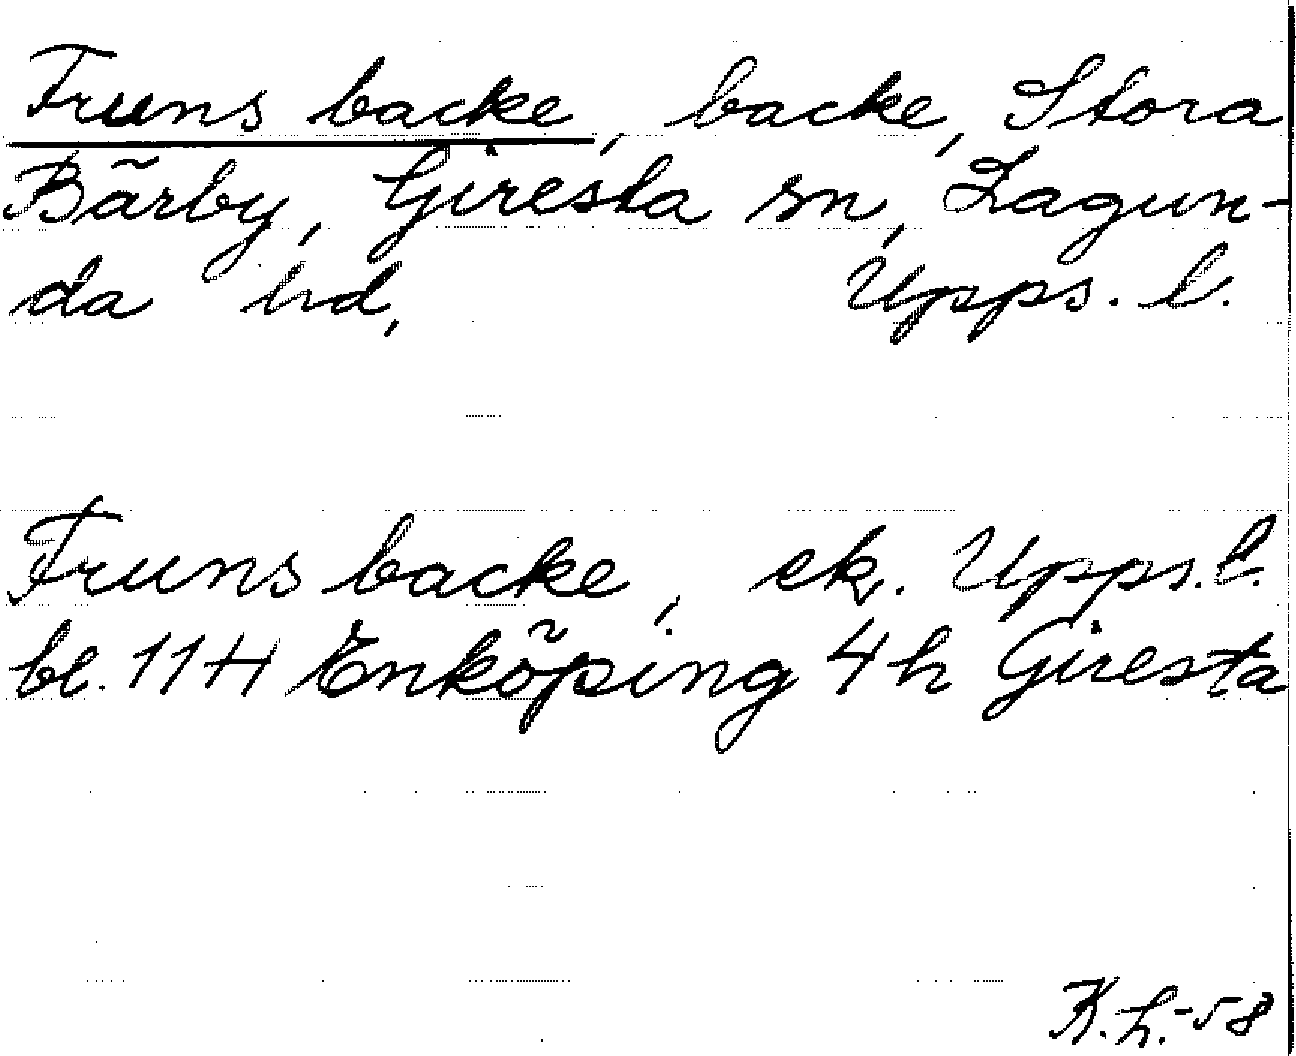 Fruns backe, backe, Stora
Bärby, Giresta sn, Lagun-
da hd, Upps. l.
Fruns backe, ek. Upps. l.
bl. 11H Enköping 4h Giresta
K.h.-58